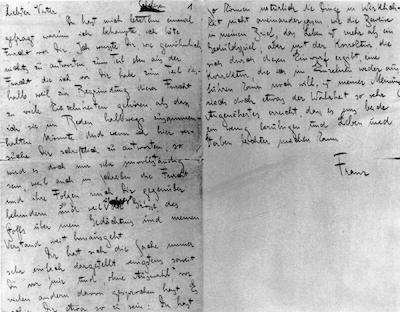 1
Liebster Vater,
Du hast mich letzthin einmal
gefragt, warum ich behaupte, ich hätte
Furcht vor Dir. Ich wusste Dir, wie gewöhnlich,
nichts zu antworten, zum Teil eben aus der
Furcht die ich vor Dir habe, zum Teil des-
halb weil zur Begründung dieser Furcht
zu viele Einzelnheiten gehören, als dass
ich sie im Reden halbwegs zusammen-
halten könnte. Und wenn ich hier ver-
suche Dir schriftlich zu antworten, so
wird es doch nur sehr unvollständig
sein, weil auch im Schreiben die Furcht
und ihre Folgen mich Dir gegenüber
behindern und weil die Grösse des
Stoffs über mein Gedächtnis und meinen
Verstand weit hinausgeht.
Dir hat sich die Sache immer
sehr einfach dargestellt, wenigstens soweit
Du vor mir und, ohne Auswahl, vor
vielen andern davon gesprochen hast. Es
schien Dir etwa so zu sein: Du hast
so können natürlich die Dinge in Wirklich-
keit nicht aneinanderpassen wie die Beweise
in meinem Brief, das Leben ist mehr als ein
Geduldspiel; aber mit der Korrektur die
sich durch diesen Einwurf ergibt, eine
Korrektur die ich im Einzelnen weder aus-
führen kann noch will, ist meiner Meinung
nach doch etwas der Wahrheit so sehr
Angenähertes erreicht, dass es uns beide
ein wenig beruhigen und Leben und
Sterben leichter machen kann.
Franz